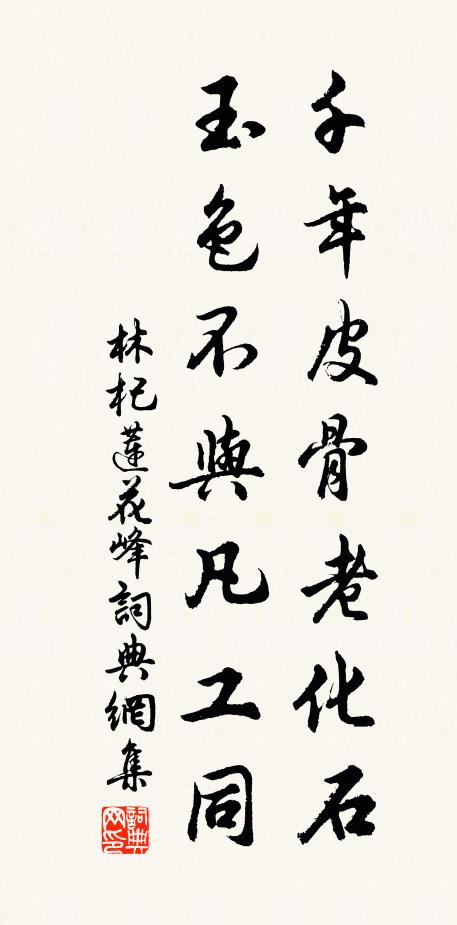 千年皮骨老化石
玉色不與凡工同
林杞蓮花峰詞典網集
詞典網印